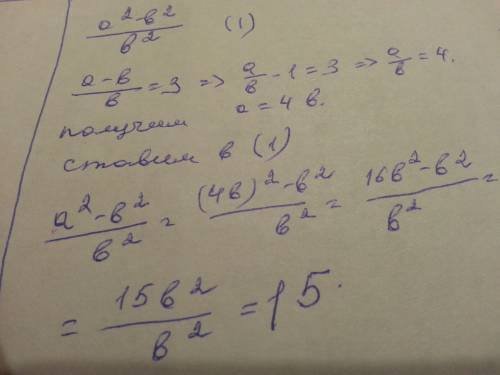 (a² - в²)/в² (1)
(a - в)/в = 3 => a/в - 1 = 3 => a/в = 4.
получим a = 4 в.
ставим в (1)
(a² - в²)/в² = ((4в)² - в²)/в² = (16в² - в²)/в² =
= 15в²/в² = 15.